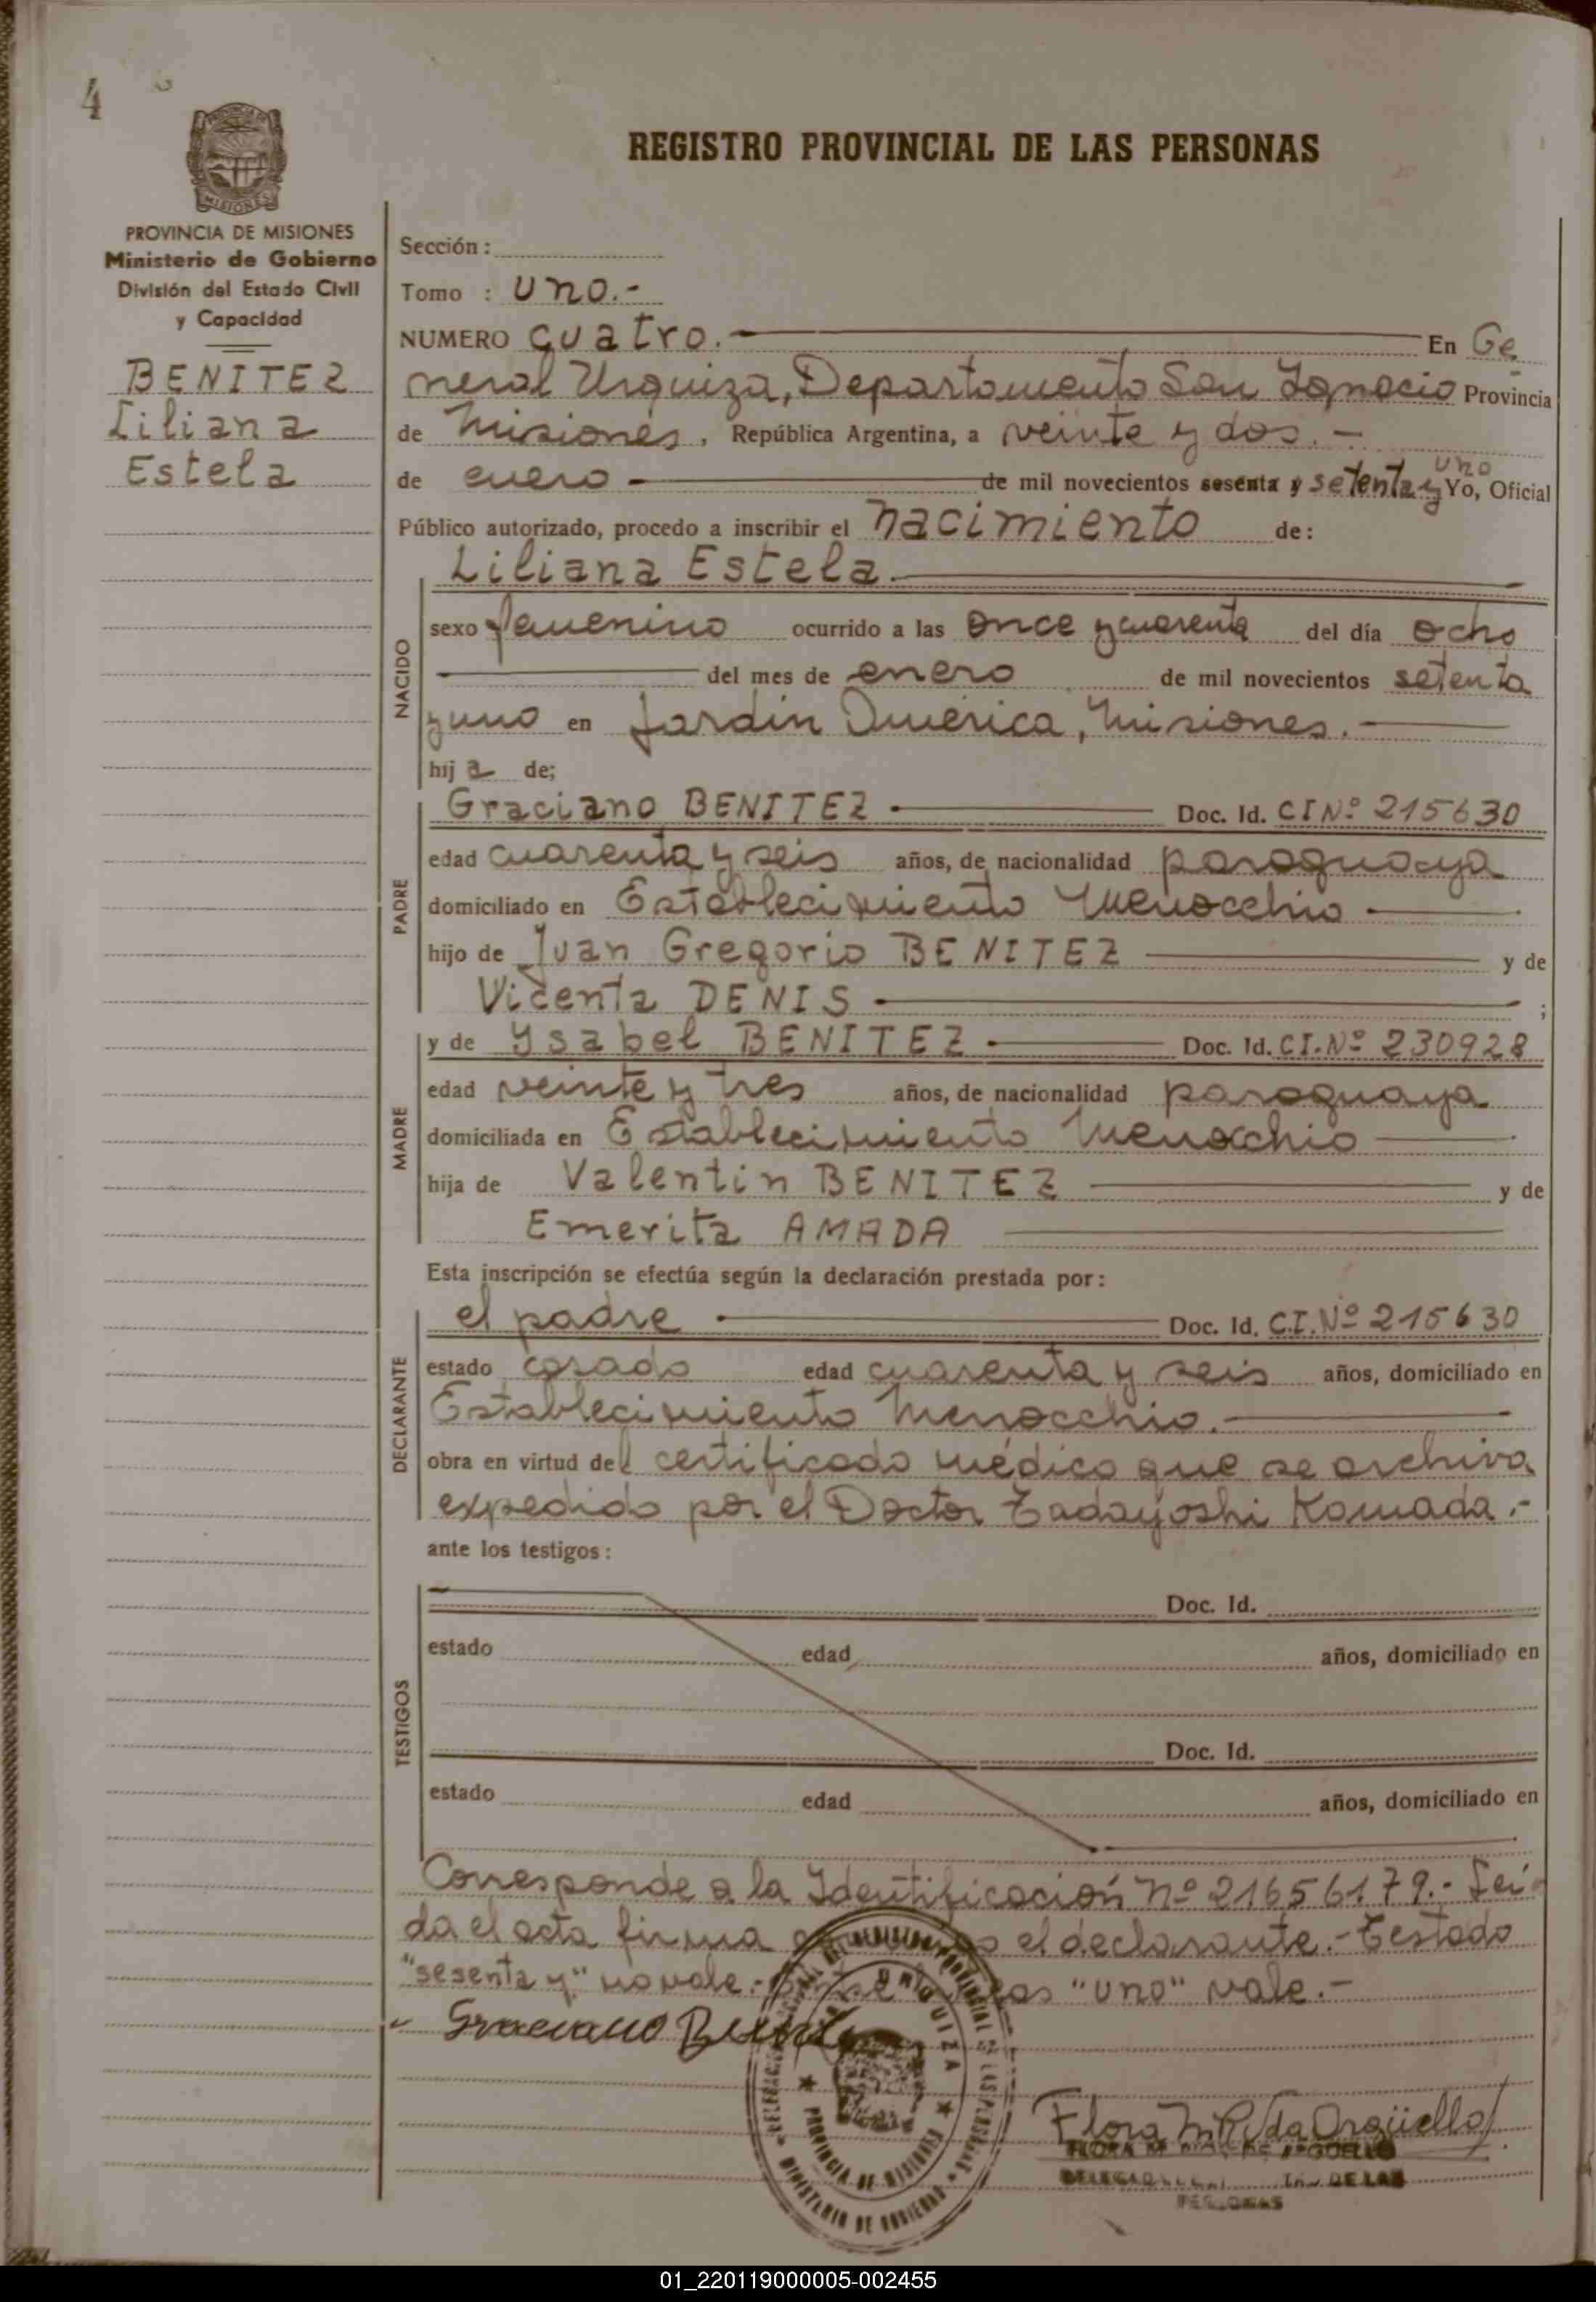 4
REGISTRO PROVINCIAL DE LAS PERSONAS
MISIONES
PROVINCIA DE MISIONES
Ministerio de Gobierno
División del Estado Civil
y Capacidad
BENITEZ
Liliana
Estela
Sección :
Tomo : uno.-
NUMERO cuatro. En Ge
neral Urquiza, Departamento San Ignacio Provincia
de Misiones. República Argentina, a veinte y dos.-
de enero de mil novecientos sesenta y setenta y uno Yo, Oficial
Público autorizado, procedo a inscribir el nacimiento de:
NACIDO
Liliana Estela.
sexo femenino ocurrido a las once y cuarenta del día ocho
del mes de enero de mil novecientos setenta
y uno en Jardín América, Misiones.
hij a de;
PADRE
Graciano BENITEZ Doc. Id. CI Nº 215630
edad cuarenta y seis años, de nacionalidad paraguaya
domiciliado en Establecimiento Menocchio
hijo de Juan Gregorio BENITEZ y de
Vicenta DENIS ;
MADRE
y de Ysabel BENITEZ Doc. Id. CI. Nº 230928
edad veinte y tres años, de nacionalidad paraguaya
domiciliada en Establecimiento Menocchio
hija de Valentin BENITEZ y de
Emerita AMADA
Esta inscripción se efectúa según la declaración prestada por:
DECLARANTE
el padre Doc. Id. C.I. Nº 215630
estado casado edad cuarenta y seis años, domiciliado en
Establecimiento Menocchio.
obra en virtud del certificado médico que se archiva
expedido por el Doctor Tadayoshi Kamada.-
ante los testigos:
TESTIGOS
Doc. Id.
estado edad años, domiciliado en
Doc. Id.
estado edad años, domiciliado en
Corresponde a la Identificación Nº 21656179.- Leí
da el acta firma el declarante.- Testado
"sesenta y" no vale.- "uno" vale.-
Graciano Benitez
PROVINCIA DE MISIONES
MINISTERIO DE GOBIERNO
Flora M. R. da Orgüello
DE LAS
PERSONAS
01_220119000005-002455